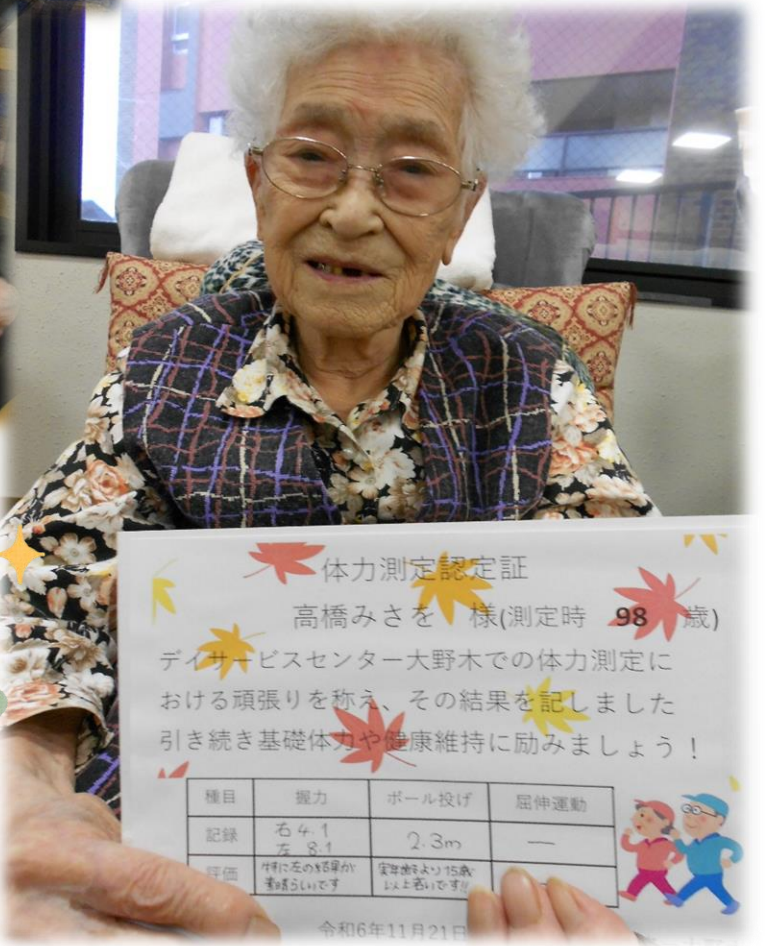 体力測定認定証
高橋みさを 様(測定時 98 歳)
デイサービスセンター大野木での体力測定に
おける頑張りを称え、その結果を記しました
引き続き基礎体力や健康維持に励みましょう！
種目 握力 ボール投げ 屈伸運動
記録 右 4.1 左 8.1 2.3m ―
評価 特に左の結果が 素晴らしいです 実年齢より15歳 以上若いです!!
令和6年11月21日